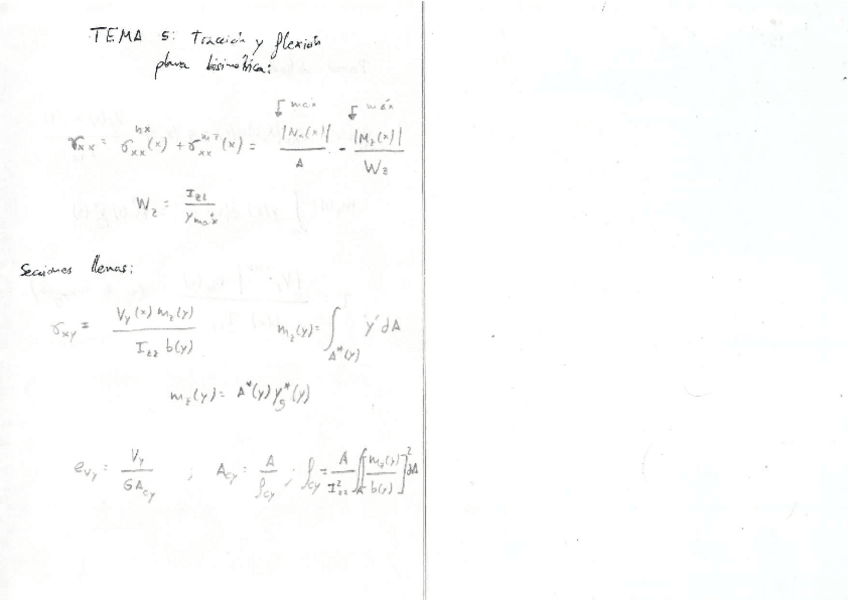 TEMA 5: Tracción y flexión
plana bisimétrica:
máx máx
σxx = σxx^Nx(x) + σxx^Mz(x) = |Nx(x)|/A - |Mz(x)|/Wz
Wz = Izz/ymáx
Secciones llenas:
σxy = Vy(x) mz(y) / Izz b(y) mz(y) = ∫A*(y) y' dA
mz(y) = A*(y) yg*(y)
eVy = Vy/GAcy ; Acy = A/ρcy ; ρcy = A/Izz² ∫∫A [mz(y)/b(y)]² dA